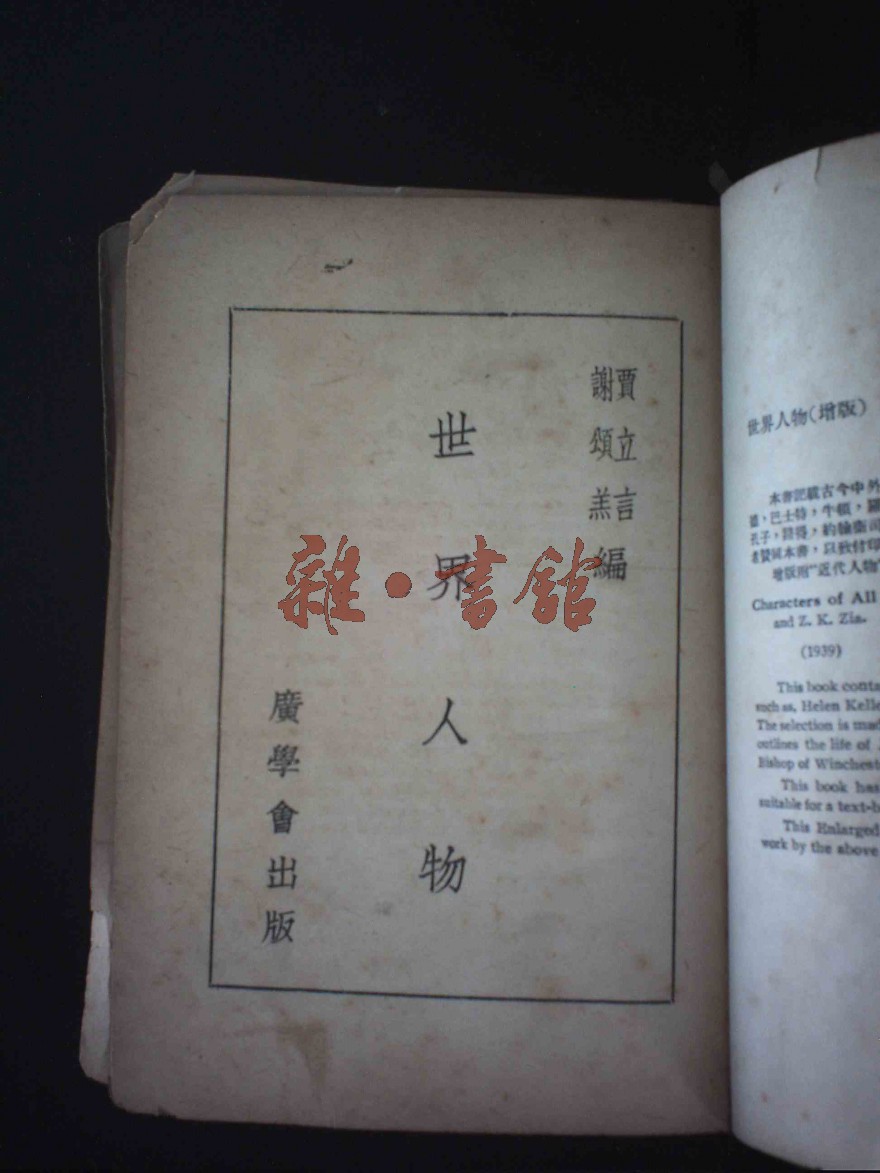 賈立言
謝頌羔
編
世界人物
廣學會出版
雜·書館
世界人物(增版)
本書記載古今中外
德,巴士特,牛頓,羅
孔子,諾得,約翰衛司
增版附“近代人物”
Characters of All
and Z. K. Zia.
(1939)
This book conta
such as, Helen Kelle
The selection is mad
outlines the life of J
Bishop of Winchest
This book has
suitable for a text-b
This Enlarged
work by the above